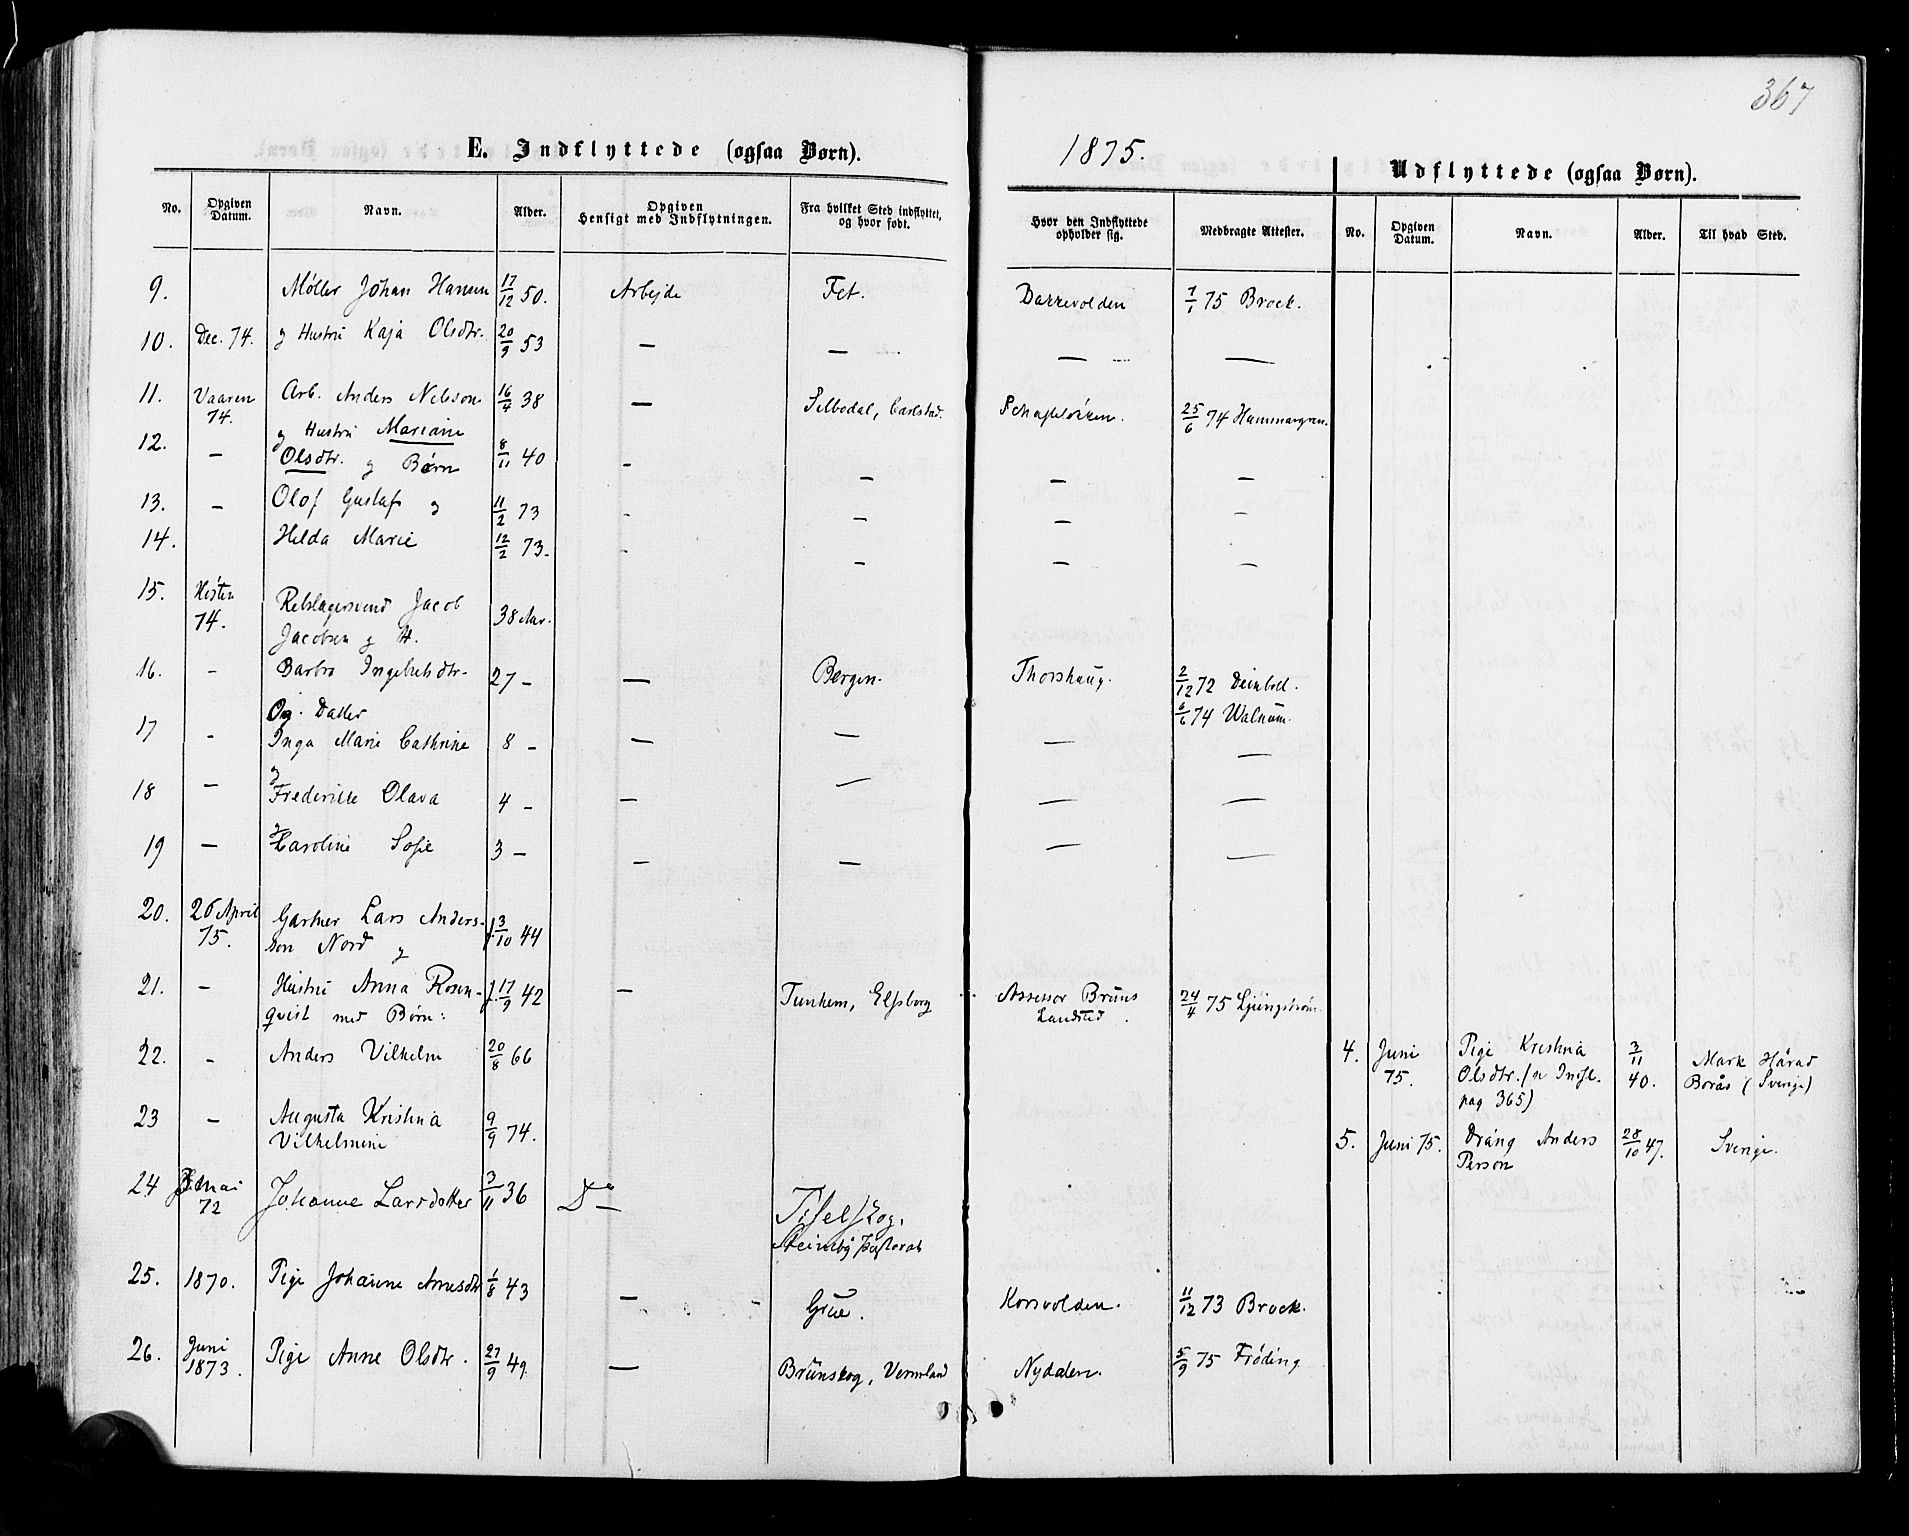 367
E. Indflyttede (ogsaa Børn).
1875.
Udflyttede (ogsaa Børn).
No. Opgiven Datum. Navn. Alder. Opgiven Hensigt med Indflytningen. Fra hvilket Sted indflyttet, og hvor født. Hvor den Indflyttede opholder sig. Medbragte Attester. No. Opgiven Datum. Navn. Alder. Til hvad Sted.
9. Møller Johan Hansen 17/12 50. Arbejde Fet. Barrevolden 7/1 75 Brock.
10. Dec. 74. og Hustru Kaja Olsdtr. 20/9 53 — — — —
11. Vaaren 74. Arb. Anders Nelsson 16/4 38 — Silbodal, Carlstad. 25/6 74 Hammargren.
12. — og Hustru Mariane
Olsdtr. og Børn 8/11 40 - — — —
13. — Olof Gustaf og 11/2 73 - — — —
14. Helda Marie 12/2 73. - — — —
15. Høsten 74. Rebslagersvend Jacob
Jacobsen og H. 38 Aar.
16. - Barbro Ingebretsdtr. 27 — — Bergen. Thorshaug. 2/12 72 Deinboll.
6/6 74 Walnum.
17 - Og Datter
Inga Marie Cathrine 8 — — — — —
18 — og Frederikke Olava 4 — — — — —
19 — og Caroline Sofie 3 — — — — —
20. 26 April 75. Gartner Lars Anders-
son Nord og f. 3/10 44
21. - Hustru Anna Rosen-
qvist med Børn: f. 17/9 42 — Tunhem, Elfsborg Assessor Bruns
Landsted. 24/4 75 Ljungstrøm.
22. - Anders Vilhelm 20/8 66
4. Juni 75. Pige Kristina
Olsdtr. (se Indfl.
pag 365) 3/11 40. Mark Härad
Borås (Sverige)
23 - Augusta Kristina
Vilhelmine 9/9 74.
5. Juni 75. Dräng Anders
Person 28/10 47. Sverige.
24 Mai 72 Johanne Larsdotter 3/11 36 Do Tisselskog,
Steineby Pastorat
25. 1870. Pige Johanne Arnesdtr 1/8 43 — Grue. Korsvolden. 11/12 73 Brock.
26. Juni 1873. Pige Anne Olsdtr. 27/9 49. — Brunskog, Vermland Nydalen. 5/9 75 Frøding